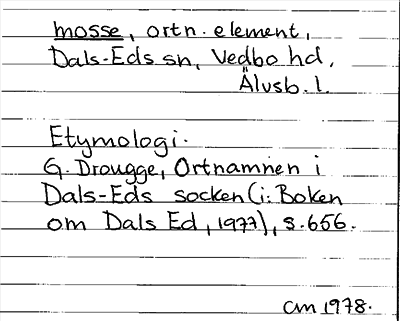 mosse, ortn. element,
Dals-Eds sn, Vedbo hd,
Älvsb. l.
Etymologi.
G. Drougge, Ortnamnen i
Dals-Eds socken (i: Boken
om Dals Ed, 1977), s. 656.
CM 1978.